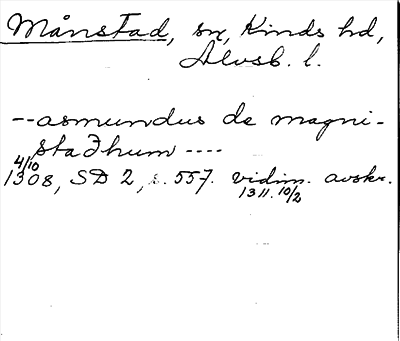 Månstad, sn, Kinds hd,
Älvsb. l.
--asmundus de magni-
staðhum ----
4/10
1308, SD 2, s. 557. vidim. avskr.
1311. 10/2